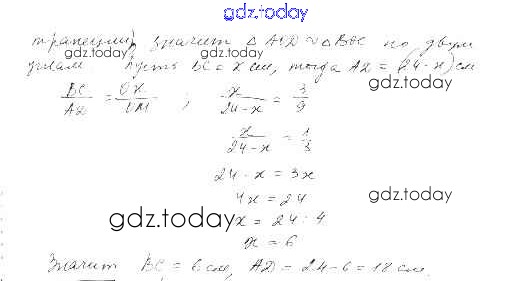 gdz.today
трапеции, значит △ AOD ∾ △ BOC по двум
углам gdz.today Пусть BC = x см, тогда AD = (24-x) см
BC/AD = OK/OM ; x/24-x = 3/9 gdz.today
x/24-x = 1/3
24 - x = 3x
4x = 24 gdz.today
gdz.today x = 24 : 4
x = 6
Значит BC = 6 см, AD = 24-6 = 18 см.